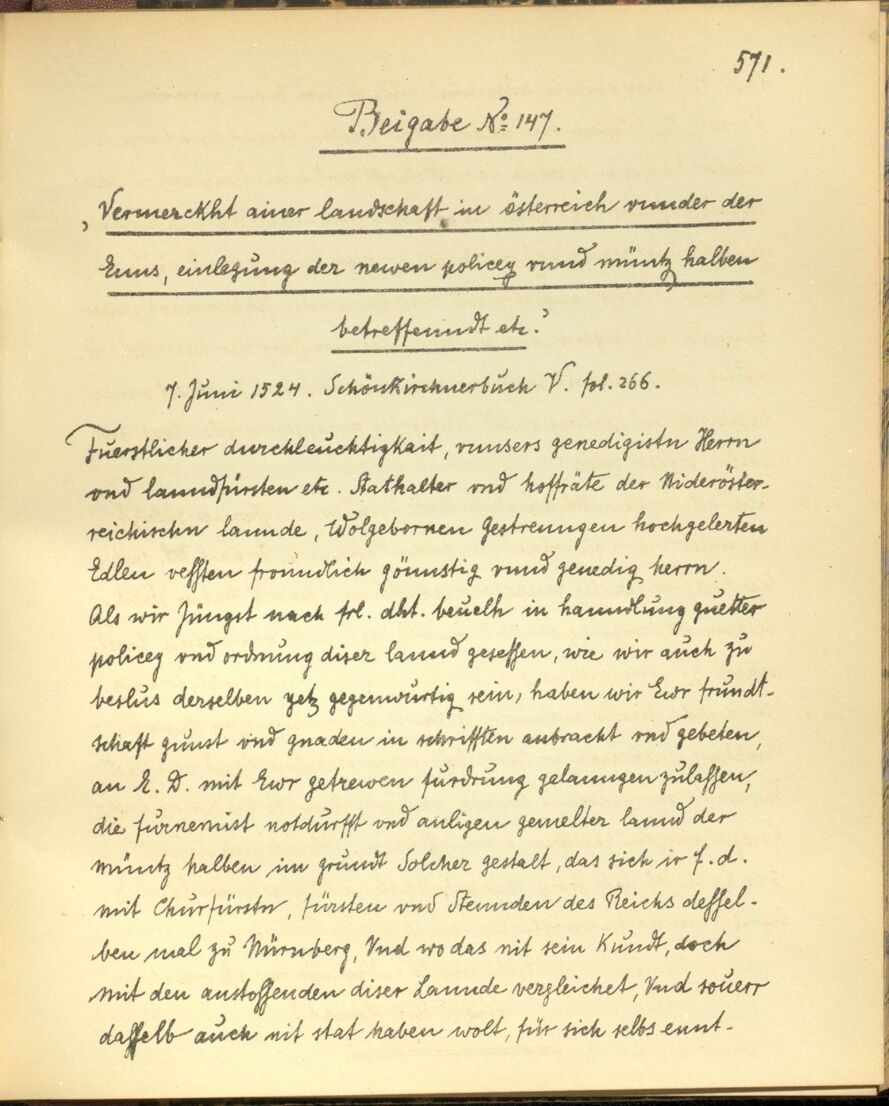 571.
Beigabe No. 147.
„Vermerckht ainer landschaft in österreich vnnder der
Enns, einlegung der newen policey vnnd müntz halben
betreffenndt etc.“
7. Juni 1524. Schönkirchnerbuch V. fol. 266.
Fuerstlicher durchleuchtigkait, vnnsers genedigistn Herrn
vnd lanndfürsten etc. Stathalter vnd hoffräte der Nideröster-
reichischn lannde, Wolgebornen Gestrenngen hochgelerten
Edlen vessten froundlich gönnstig vnnd genedig herrn.
Als wir Jüngst nach frl. dht. beuelh in hanndlung guetter
policey vnd ordnung diser lannd gesessen, wie wir auch zu
beslus derselben yetz gegenwurtig sein, haben wir Ewr frundt-
schaft gunst vnd gnaden in schrifften anbracht vnd gebeten,
an E. D. mit Ewr getrewen furdrung gelanngen zulassen,
die furnemist notdurfft vnd anligen gemelter lannd der
müntz halben im grundt Solcher gestalt, das sich ir f. d.
mit Churfürstn, fürsten vnd Stennden des Reichs dessel-
ben mal zu Nürnberg, Vnd wo das nit sein kundt, doch
mit den anstossenden diser Lannde vergleichet, Vnd souerr
dasselb auch nit stat haben wolt, für sich selbs ennt-